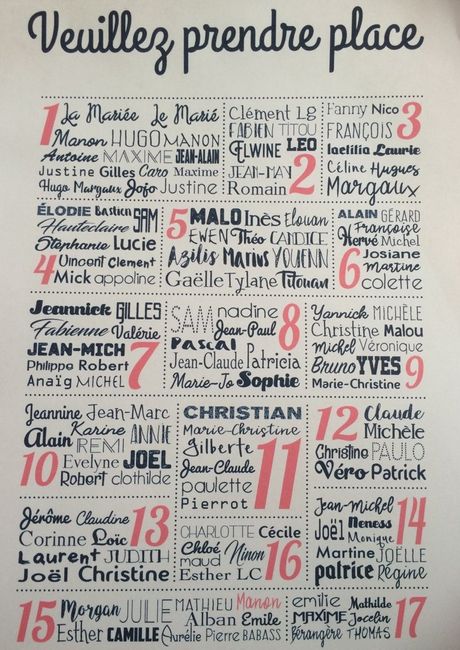 Veuillez prendre place
1
La Mariée Le Marié
Manon HUGO MANON
Antoine MAXIME JEAN-ALAIN
Justine Gilles Caro Maxime
Hugo Margaux Jojo Justine
Clément Lg
FABIEN TITOU
ELWINE LEO
JEAN-MAY
Romain 2
Fanny Nico 3
FRANÇOIS
laetitia Laurie
Céline Hugues
Margaux
ÉLODIE Bastien SAM
Hauteclaire
Stephanie Lucie
4 Vincent Clement
Mick appoline
5 MALO Inès Elouan
EWEN Théo CANDICE
Azilis Marius YOUENN
Gaëlle Tylane Titouan
ALAIN GÉRARD
Françoise
Hervé Michel
6 Josiane
Martine
colette
Jeannick GILLES
Fabienne Valérie
JEAN-MICH 7
Philippe Robert
Anaïg MICHEL
SAM nadine
Jean-Paul 8
Pascal
Jean-Claude Patricia
Marie-Jo Sophie
Yannick MICHÈLE
Christine Malou
Michel Véronique
Bruno YVES 9
Marie-Christine
Jeannine Jean-Marc
Alain Karine ANNIE
REMI
10 Evelyne JOEL
Robert clothilde
CHRISTIAN
Marie-Christine
Gilberte
Jean-Claude 11
paulette
Pierrot
12 Claude
Michèle
Christine PAULO
Véro Patrick
Jérôme Claudine 13
Corinne Loïc
Laurent JUDITH
Joël Christine
CHARLOTTE Cécile
Chloé Ninon 16
maud
Esther LC
Jean-Michel 14
Joël Neness
Monique
Martine JOËLLE
patrice Régine
15 Morgan JULIE MATHIEU Manon
Esther CAMILLE Alban Emile
Aurélie Pierre BABASS
emilie Mathilde 17
MAXIME Jocelin
Bérangère THOMAS